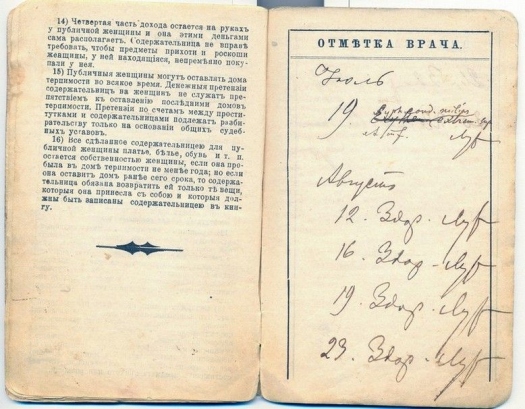 14) Четвертая часть дохода остается на рукахъ
у публичной женщины и она этими деньгами
сама располагаетъ. Содержательница не вправѣ
требовать, чтобы предметы прихоти и роскоши
женщины, у ней находящiяся, непремѣнно поку-
пали у нея.
15) Публичныя женщины могутъ оставлять дома
терпимости во всякое время. Денежныя претензiи
содержательницъ на женщинъ не служатъ пре-
пятствiемъ къ оставленiю послѣдними домовъ
терпимости. Претензiи по счетамъ между прости-
тутками и содержательницами подлежатъ разби-
рательству только на основанiи общихъ судеб-
ныхъ уставовъ.
16) Все сдѣланное содержательницею для пу-
бличной женщины платье, бѣлье, обувь и т. п.
остается собственностью женщины, если она про-
была въ домѣ терпимости не менѣе года; но если
она оставитъ домъ ранѣе сего срока, то содержа-
тельница обязана возвратить ей только тѣ вещи,
которыя она принесла съ собою и которыя дол-
жны быть записаны содержательницею въ кни-
гу.
ОТМѢТКА ВРАЧА.
Июль
19
Августъ
12. Здор.
16. Здор.
19. Здор.
23. Здор.